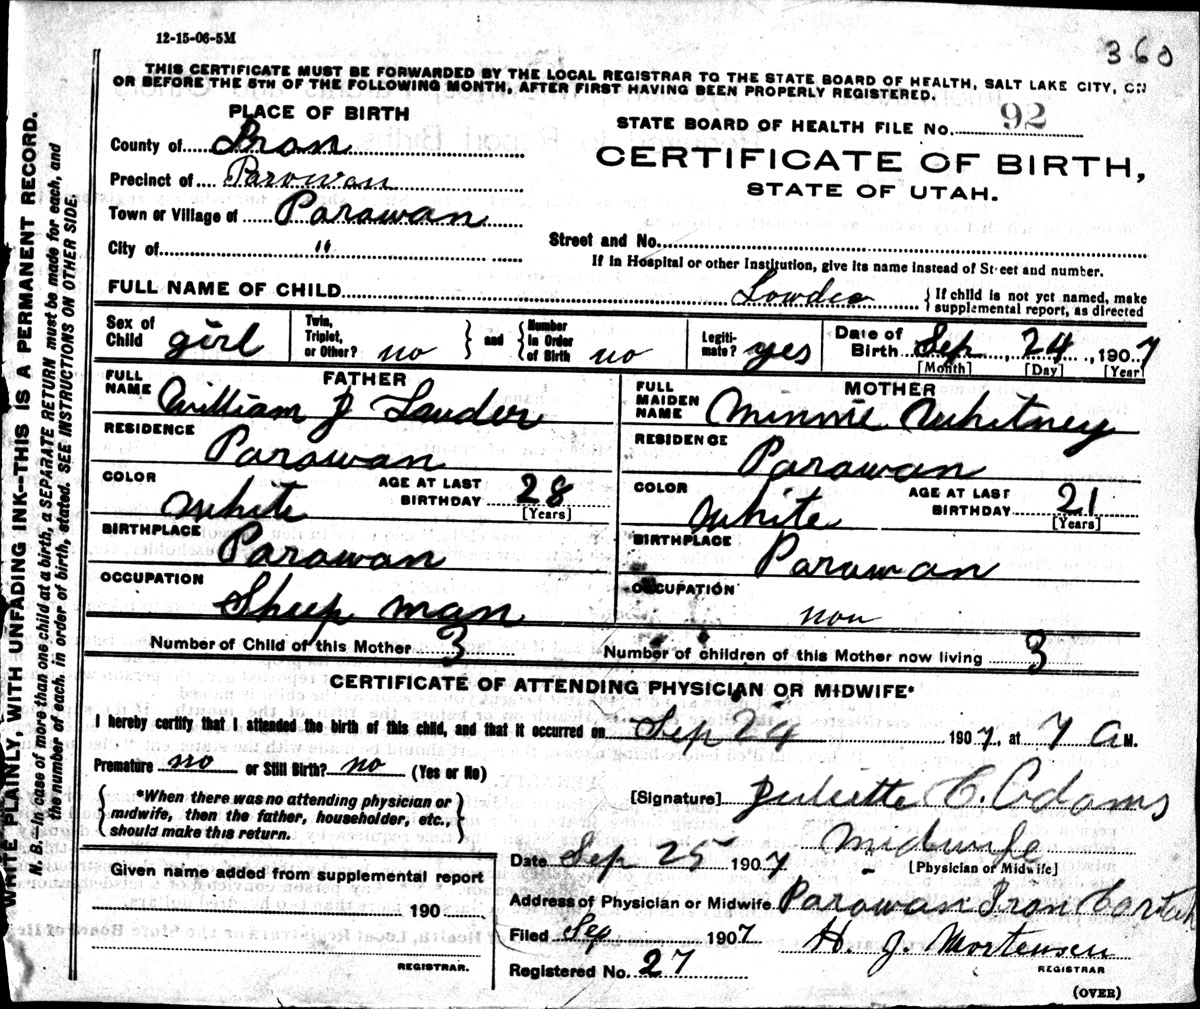 12-15-06-5M
360
THIS CERTIFICATE MUST BE FORWARDED BY THE LOCAL REGISTRAR TO THE STATE BOARD OF HEALTH, SALT LAKE CITY, ON
OR BEFORE THE 5TH OF THE FOLLOWING MONTH, AFTER FIRST HAVING BEEN PROPERLY REGISTERED.
PLACE OF BIRTH
County of Iron
Precinct of Parowan
Town or Village of Parowan
City of "
STATE BOARD OF HEALTH FILE No. 92
CERTIFICATE OF BIRTH,
STATE OF UTAH.
Street and No.
If in Hospital or other Institution, give its name instead of Street and number.
FULL NAME OF CHILD Lowder
If child is not yet named, make
supplemental report, as directed
Sex of Child girl
Twin, Triplet, or Other? no
and
Number In Order of Birth no
Legitimate? yes
Date of Birth Sep 24, 1907
[Month] [Day] [Year]
FATHER
FULL NAME William J Lauder
RESIDENCE Parawan
COLOR White
AGE AT LAST BIRTHDAY 28
[Years]
BIRTHPLACE Parawan
OCCUPATION Sheep man
MOTHER
FULL MAIDEN NAME Minnie Whitney
RESIDENCE Parawan
COLOR White
AGE AT LAST BIRTHDAY 21
[Years]
BIRTHPLACE Parawan
OCCUPATION non
Number of Child of this Mother 3
Number of children of this Mother now living 3
CERTIFICATE OF ATTENDING PHYSICIAN OR MIDWIFE*
I hereby certify that I attended the birth of this child, and that it occurred on Sep 24 1907, at 7 A M.
Premature no or Still Birth? no (Yes or No)
*When there was no attending physician or
midwife, then the father, householder, etc.,
should make this return.
[Signature] Juliette C. Adams
Midwife
[Physician or Midwife]
Date Sep 25 1907
Given name added from supplemental report
190
REGISTRAR.
Address of Physician or Midwife Parawan Iron Co Utah
Filed Sep 1907 H. J. Mortensen
REGISTRAR
Registered No. 27
(OVER)
WRITE PLAINLY, WITH UNFADING INK—THIS IS A PERMANENT RECORD.
N. B.—In case of more than one child at a birth, a SEPARATE RETURN must be made for each, and
the number of each, in order of birth, stated. SEE INSTRUCTIONS ON OTHER SIDE.